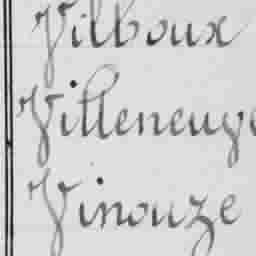 Vilboux
Villeneuve
Vinouze